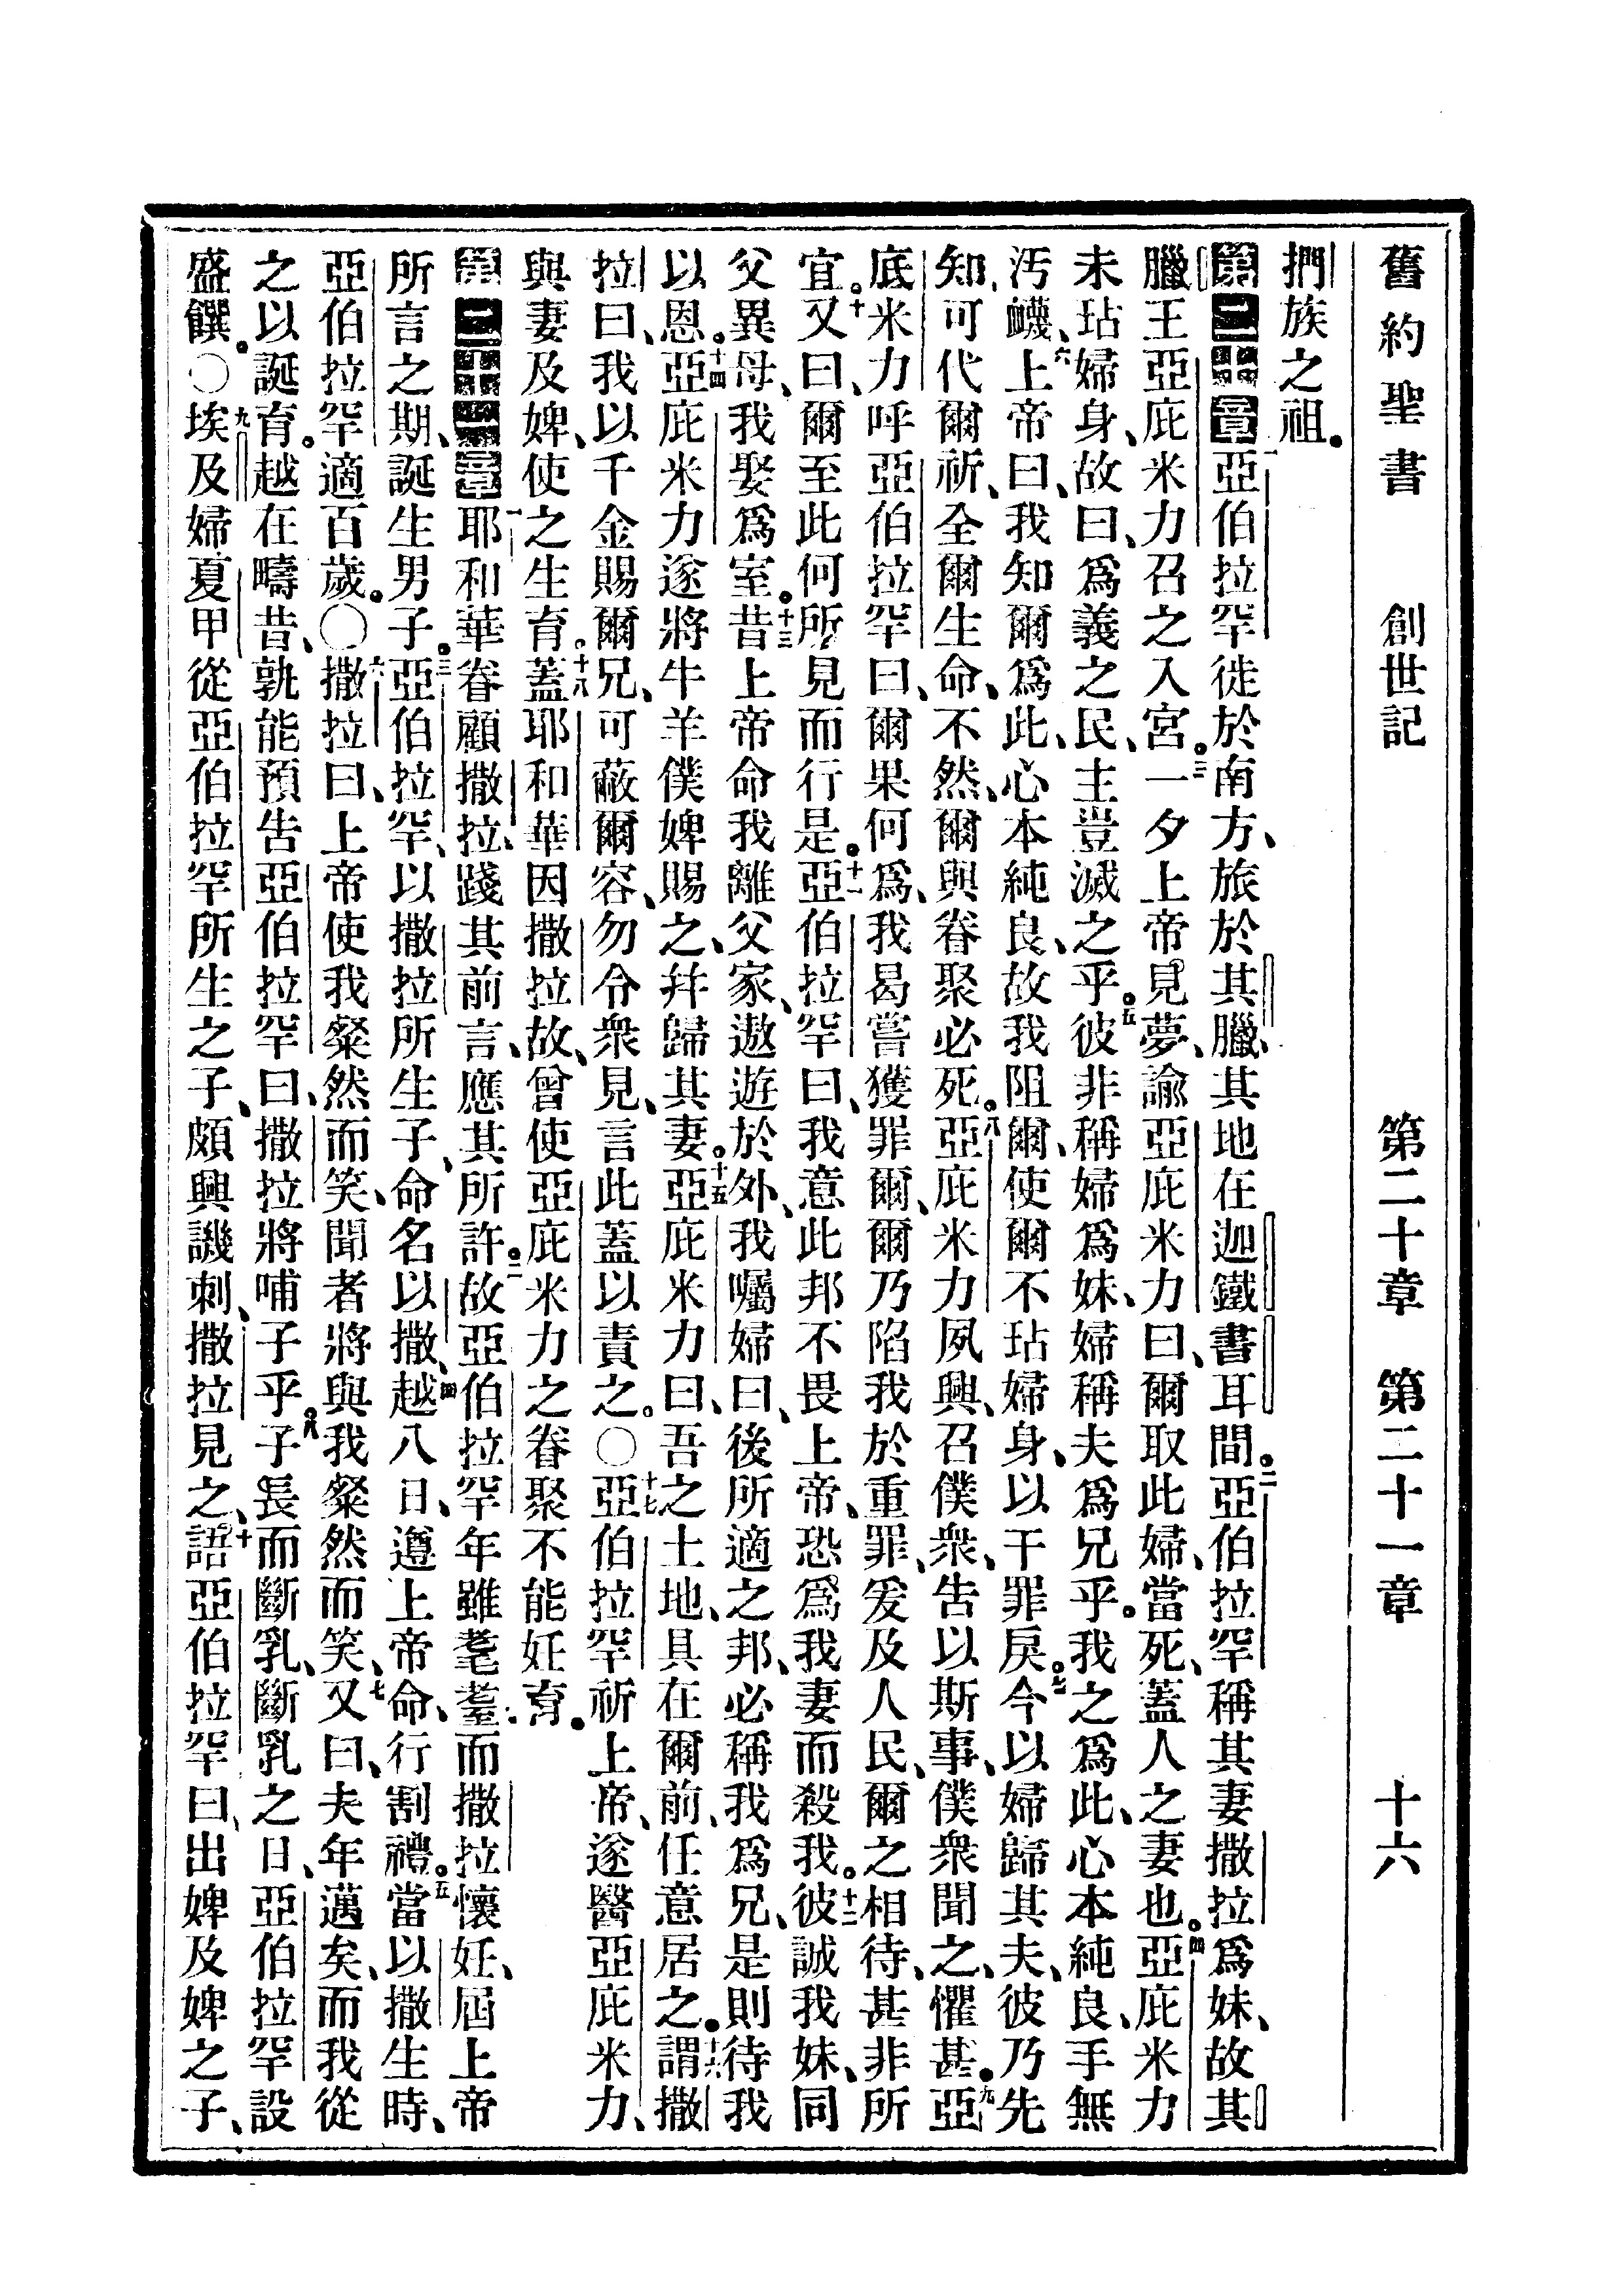 舊約聖書 創世記 第二十章 第二十一章 十六
捫族之祖。
第二十章一亞伯拉罕徙於南方、旅於其臘、其地在迦鐵書耳間。二亞伯拉罕稱其妻撒拉爲妹、故其
臘王亞庇米力召之入宮。三一夕上帝見夢、諭亞庇米力曰、爾取此婦、當死、蓋人之妻也。四亞庇米力
未玷婦身、故曰、爲義之民、主豈滅之乎。五彼非稱婦爲妹、婦稱夫爲兄乎。我之爲此、心本純良、手無
汚衊、六上帝曰、我知爾爲此、心本純良、故我阻爾、使爾不玷婦身、以干罪戾。七今以婦歸其夫、彼乃先
知、可代爾祈、全爾生命、不然、爾與眷聚必死。八亞庇米力夙興、召僕衆、告以斯事、僕衆聞之、懼甚。九亞
庇米力呼亞伯拉罕曰、爾果何爲、我曷嘗獲罪爾、爾乃陷我於重罪、爰及人民、爾之相待、甚非所
宜。十又曰、爾至此何所見而行是。十一亞伯拉罕曰、我意此邦不畏上帝、恐爲我妻而殺我。十二彼誠我妹、同
父異母、我娶爲室。十三昔上帝命我離父家、遨遊於外、我囑婦曰、後所適之邦、必稱我爲兄、是則待我
以恩。十四亞庇米力遂將牛羊僕婢賜之、幷歸其妻。十五亞庇米力曰、吾之土地、具在爾前、任意居之。十六謂撒
拉曰、我以千金賜爾兄、可蔽爾容、勿令衆見、言此蓋以責之。〇十七亞伯拉罕祈上帝、遂醫亞庇米力、
與妻及婢、使之生育。十八蓋耶和華因撒拉故、曾使亞庇米力之眷聚不能妊育。
第二十一章一耶和華眷顧撒拉、踐其前言、應其所許。二故亞伯拉罕年雖耄耋、而撒拉懷妊、屆上帝
所言之期、誕生男子。三亞伯拉罕、以撒拉所生子、命名以撒、四越八日、遵上帝命、行割禮。五當以撒生時、
亞伯拉罕適百歲。〇六撒拉曰、上帝使我粲然而笑、聞者將與我粲然而笑、七又曰、夫年邁矣、而我從
之以誕育。越在疇昔、孰能預告亞伯拉罕曰、撒拉將哺子乎。八子長而斷乳、斷乳之日、亞伯拉罕設
盛饌。〇九埃及婦夏甲從亞伯拉罕所生之子、頗興譏刺、撒拉見之、十語亞伯拉罕曰、出婢及婢之子、